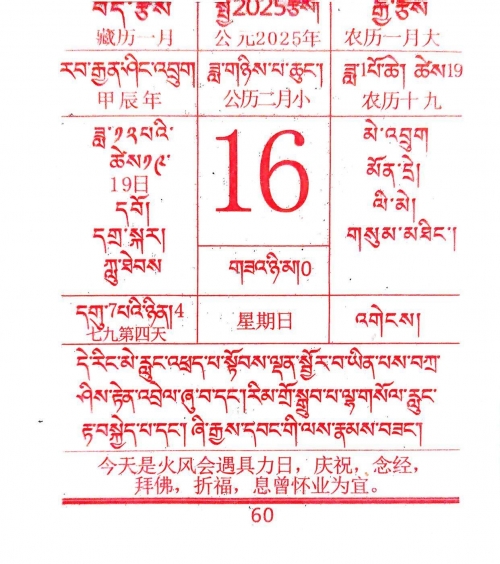 བོད་རྩིས སྤྱི་2025ཟླ། རྒྱ་རྩིས
藏历一月 公元2025年 农历一月大
རབ་རྒྱན་ཤིང་འབྲུག ཟླ་གཉིས་པ་ཆུང་། ཟླ་1པོ་ཆེ། ཚེས19
甲辰年 公历二月小 农历十九
ཟླ་༡༢པའི་
ཚེས༡༩་
19日
དབོ།
དགྲ་སྐར།
ཀླུ་ཐེབས
16
གཟའ་ཉི་མ།0
མེ་འབྲུག
མོན་དྲེ།
ལི་མེ།
གསུམ་མཐིང་།
དགུ་7པའི་ཉིན།4
七九第四天
星期日
འགེངས།
དེ་རིང་མེ་རླུང་འཕྲད་པ་སྟོབས་ལྡན་སྦྱོར་བ་ཡིན་པས་བཀྲ་
ཤིས་རྟེན་འབྲེལ་ཞུ་བ་དང་། རིམ་གྲོ་སྒྲུབ་པ་ལྷ་གསོལ་རླུང་
རྟ་བསྐྱེད་པ་དང་། ཞི་རྒྱས་དབང་གི་ལས་རྣམས་བཟང་།
今天是火风会遇具力日，庆祝，念经，
拜佛，折福，息曾怀业为宜。
60